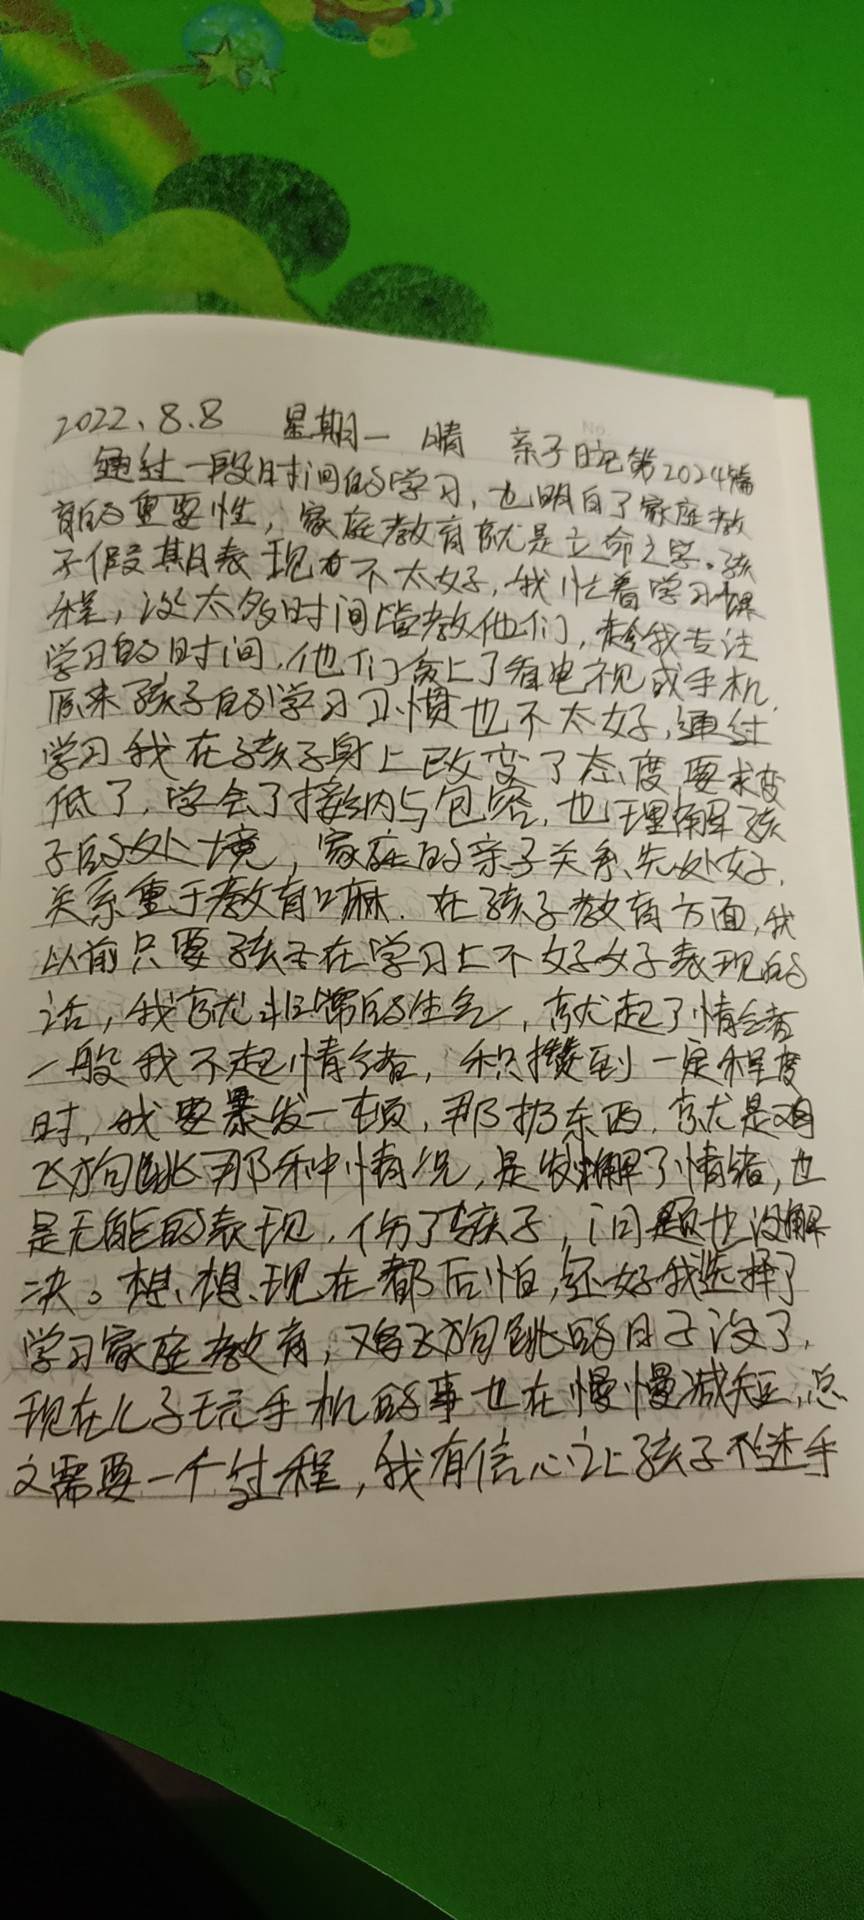 2022、8.8 星期一 晴 亲子日记第2024篇
通过一段时间的学习，也明白了家庭教
育的重要性，家庭教育就是立命之学。孩
子假期表现也不太好，我忙着学习课
程，没太多时间管教他们，趁我专注
学习的时间，他们贪上了看电视或手机，
原来孩子的学习习惯也不太好，通过
学习我在孩子身上改变了态度要求变
低了，学会了接纳与包容，也理解孩
子的处境，家庭的亲子关系、先处好，
关系重于教育嘛．在孩子教育方面，我
以前只要孩子在学习上不好好表现的
话，我就非常的生气，就起了情绪
一般我不起情绪，积攒到一定程度
时，我要暴发一顿，那扔东西，就是鸡
飞狗跳那种情况，是发解了情绪，也
是无能的表现，伤了孩子，问题也没解
决。想、想、现在都后怕，还好我选择了
学习家庭教育，鸡飞狗跳的日子没了，
现在儿子玩手机的事也在慢慢减短，总
之需要一个过程，我有信心让孩子不迷手